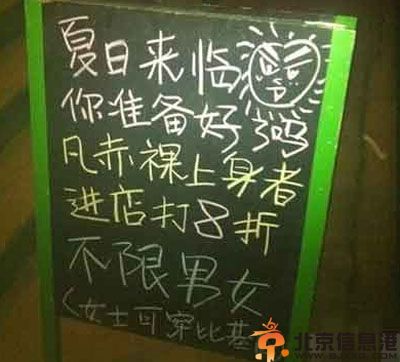 夏日来临
你准备好了吗
凡赤裸上身者
进店打8折
不限男女
(女士可穿比基
北京信息港